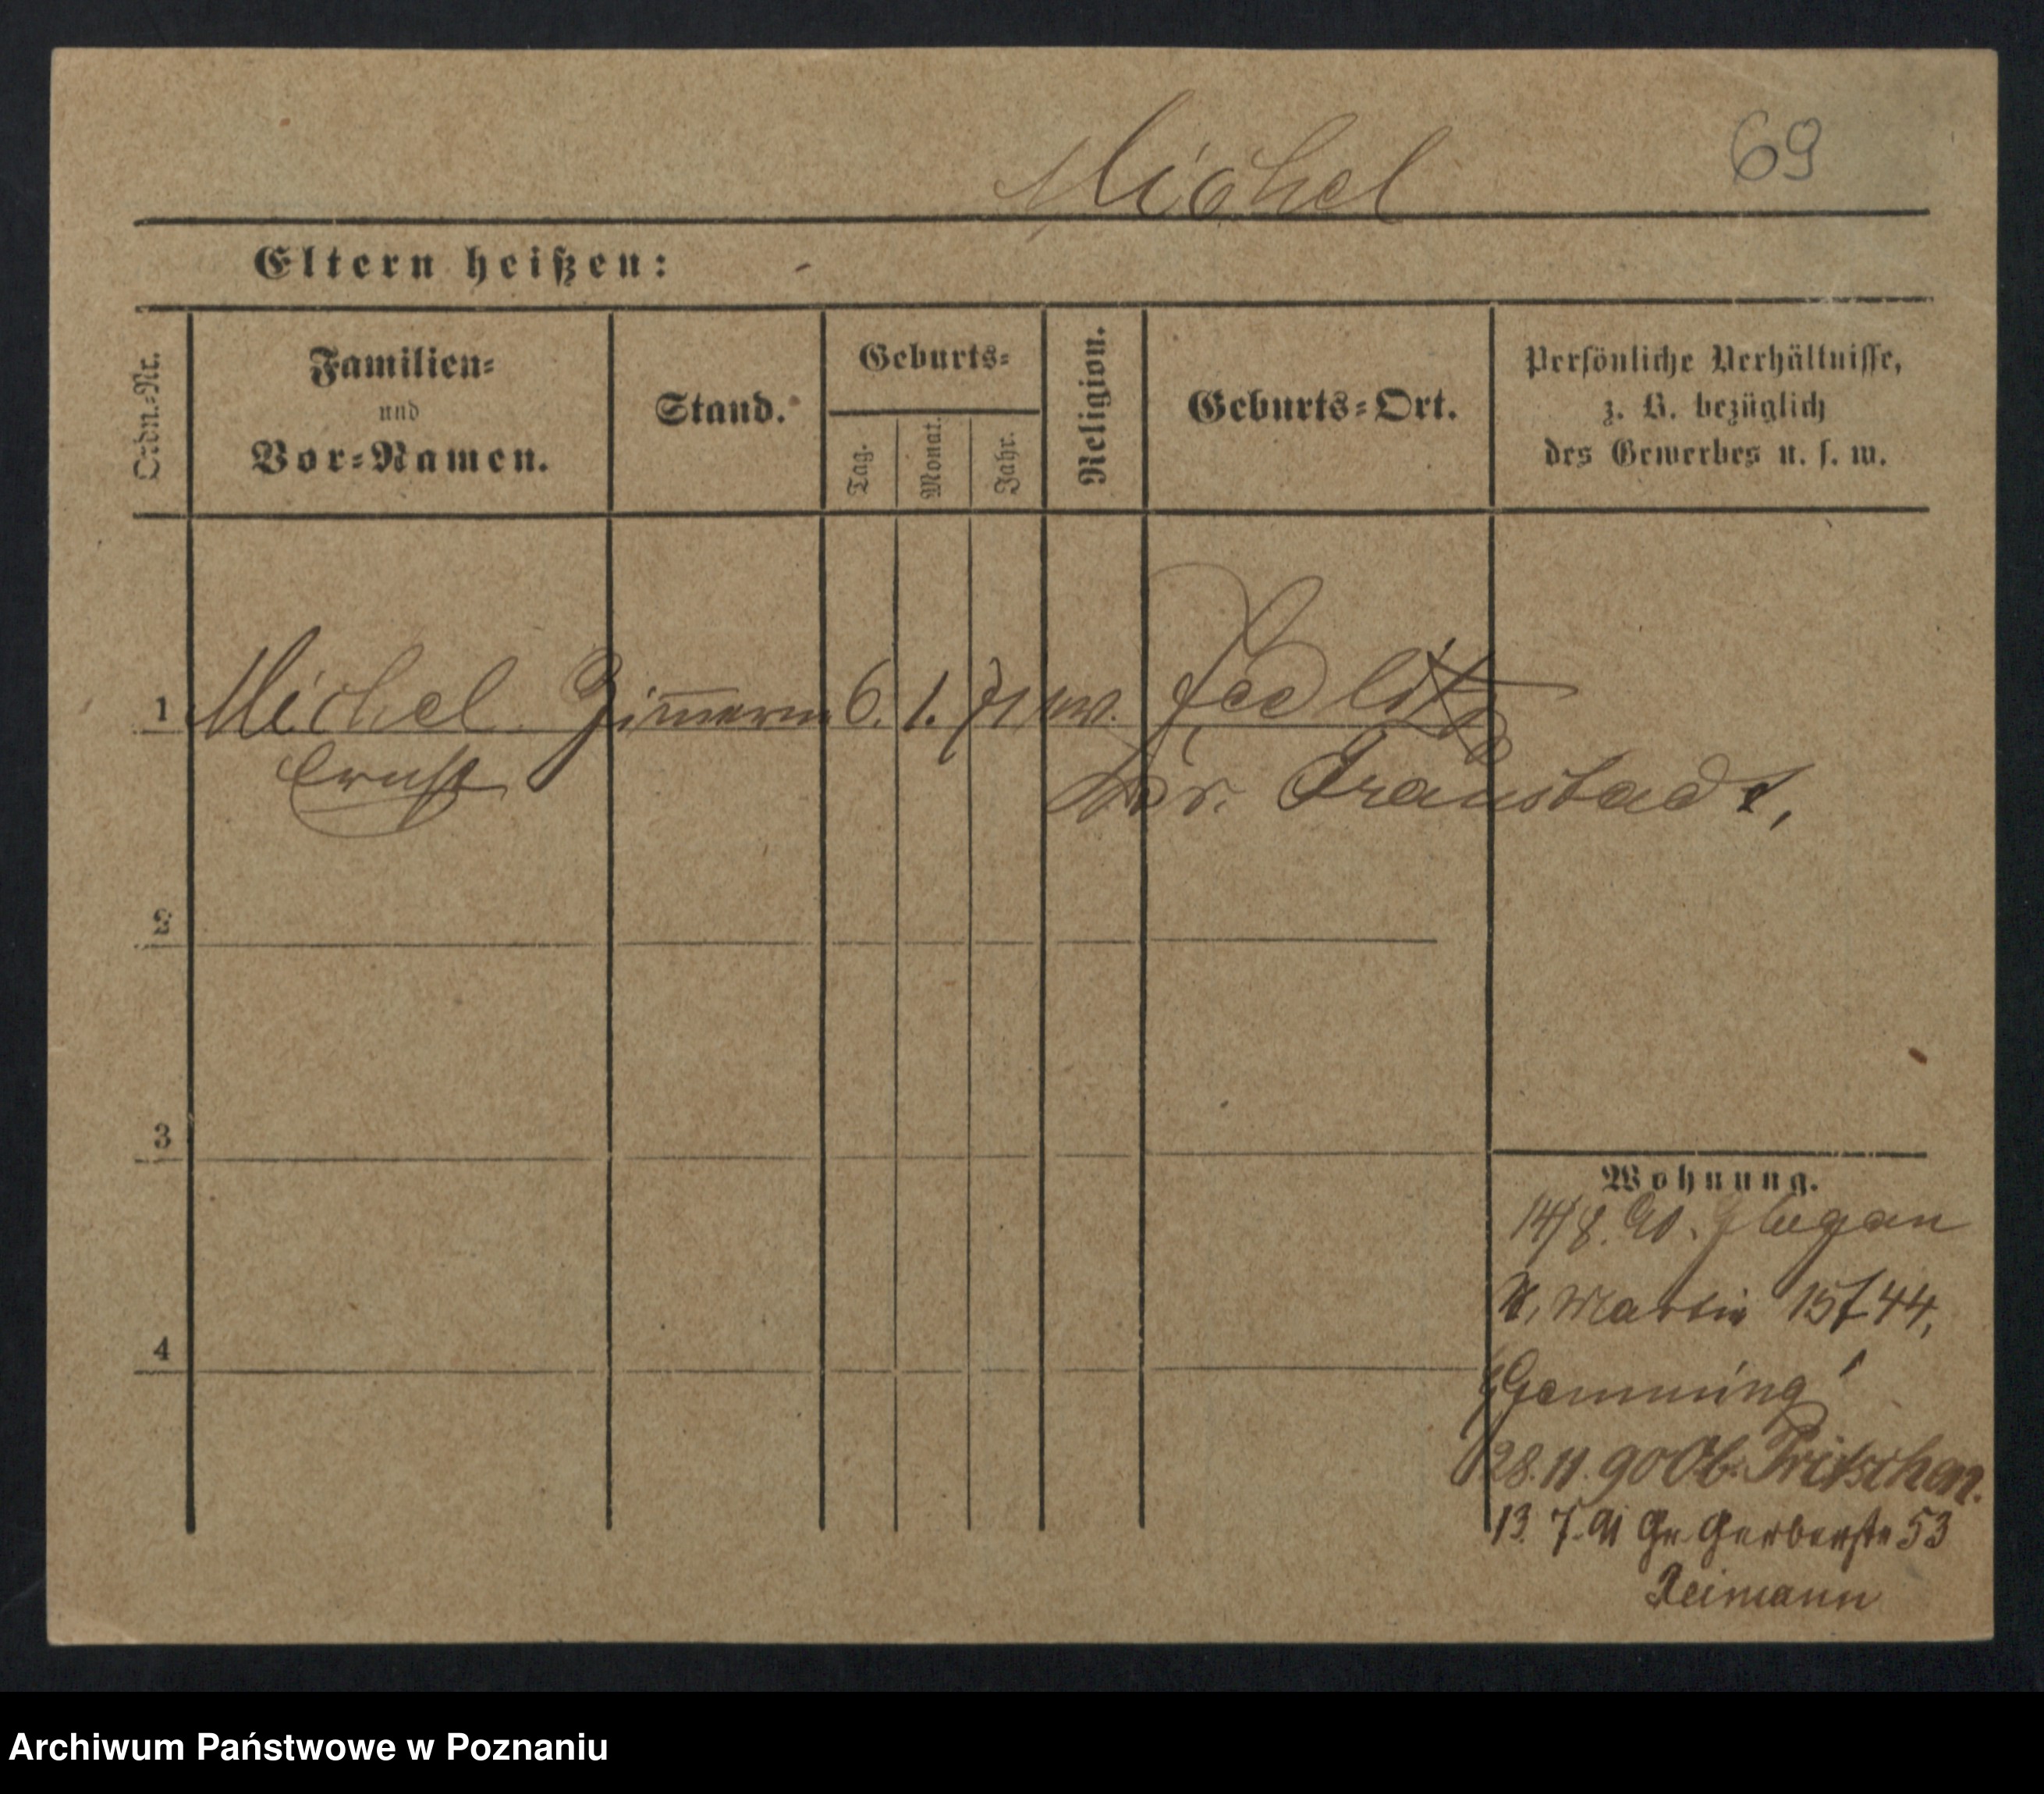 Michel 69
Eltern heißen: -
Ordn.-Nr. Familien- und Vor-Namen. Stand. Geburts- Tag. Monat. Jahr. Religion. Geburts-Ort. Persönliche Verhältnisse, z. B. bezüglich des Gewerbes u. s. w.
1 Michel Zimmerm 6. 1. 71 ev.
Ernst Kr. Fraustadt,
2
3
Wohnung.
14/8. 90. Glogau
St. Martin 44,
4
28. 11. 90 Ob. Pritschen.
13. 7. 91 Gr. Gerberstr 53
Reimann
Archiwum Państwowe w Poznaniu